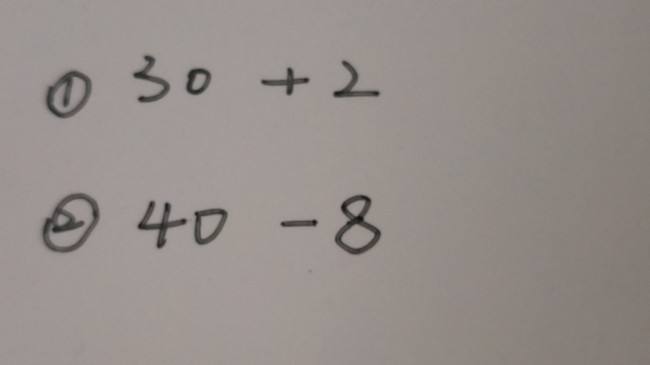 ① 30 + 2
② 40 - 8